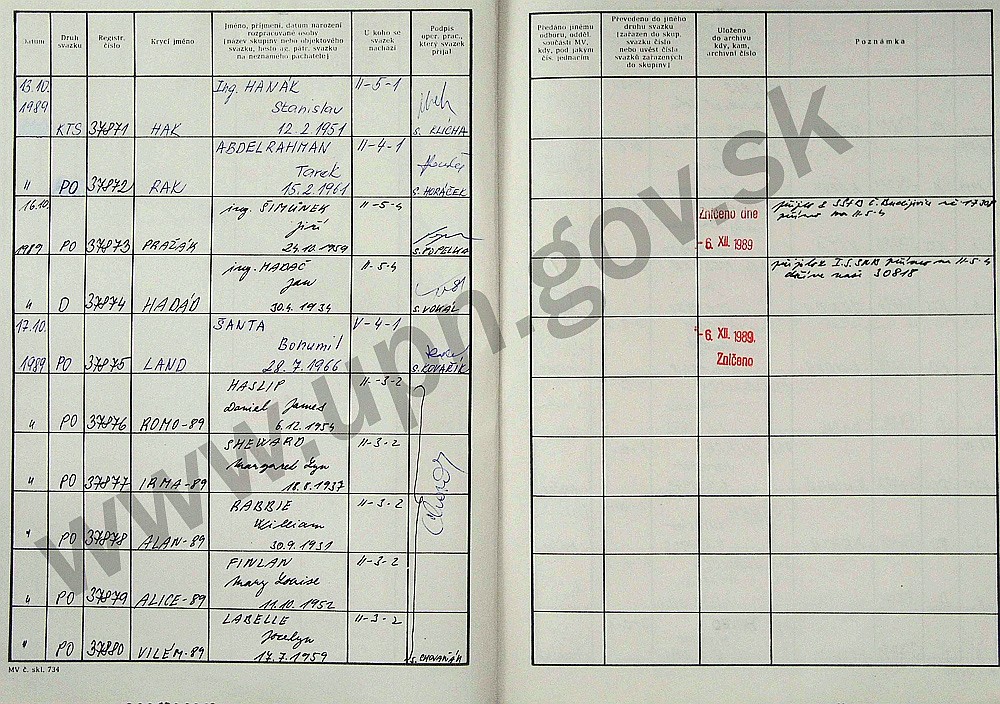 Datum
Druh svazku
Registr. číslo
Krycí jméno
Jméno, příjmení, datum narození
rozpracované osoby
[název skupiny nebo objektového
svazku, heslo ag. pátr. svazku
na neznámého pachatele]
U koho se
svazek
nachází
Podpis
oper. prac.,
který svazek
přijal
Předáno jinému
odboru, odděl.
součásti MV,
kdy, pod jakým
čís. jednacím
Převedeno do jiného
druhu svazku
[zařazen do skup.
svazku číslo
nebo uvést čísla
svazků zařazených
do skupiny]
Uloženo
do archivu
kdy, kam,
archivní číslo
Poznámka
13.10. Ing. HANÁK II-5-1
1989 Stanislav
KTS 37871 HAK 12.2.1951 S. KLÍCHA
ABDELRAHMAN II-4-1
Tarek
" PO 37872 RAK 15.2.1961 S. HORÁČEK
16.10. ing. ŠIMŮNEK II-5-4
Jiří
1989 PO 37873 PRAŽÁK 24.10.1959 S. POPELKA
Zničeno dne
-6. XII. 1989
na II-5-4
ing. HADAČ II-5-4
Jan
" D 37874 HADAD 30.4.1934 S. VOKAL
na II-5-4
30818
17.10. ŠANTA V-4-1
Bohumil
1989 PO 37875 LAND 28.7.1966 S. KOVAŘÍK
-6. XII. 1989
Zničeno
HASLIP II-3-2
Daniel James
" PO 37876 ROMO-89 6.12.1954
SHEWARD II-3-2
Margaret Lyn
" PO 37877 IRMA-89 18.8.1937
RABBIE II-3-2
William
" PO 37878 ALAN-89 30.9.1931
FINLAN II-3-2
Mary Louise
" PO 37879 ALICE-89 11.10.1952
LABELLE II-3-2
Jocelyn
" PO 37880 VILÉM-89 17.7.1959 S. CHOVAŇÁK
MV č. skl. 734
www.upn.gov.sk